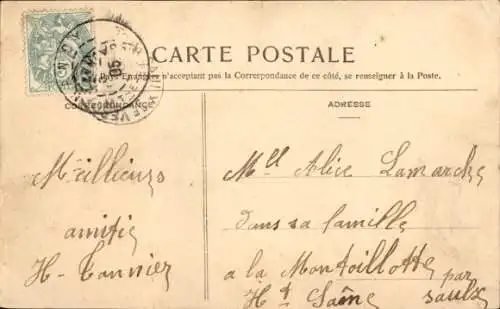 CARTE POSTALE
n'acceptant pas la Correspondance de ce côté, se renseigner à la Poste.
CORRESPONDANCE
ADRESSE
Meillieurs
amitié
H. Tannier
Mell Alice Lamarche
dans sa famille
a la Montoillotte par
Ht Saône saulx
05